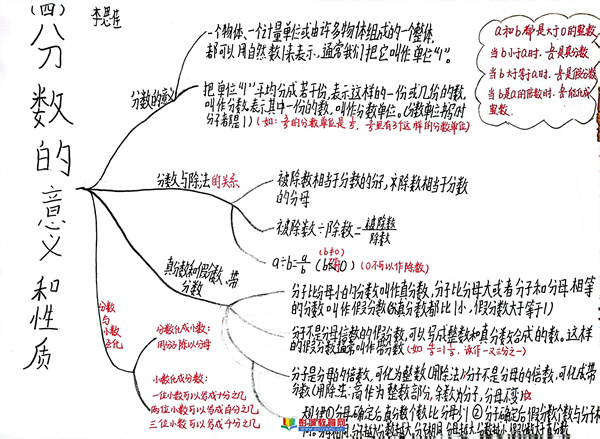 (四)
李思佳
分数的意义和性质
分数的意义
一个物体、一个计量单位或由许多物体组成的一个整体,
都可以用自然数1来表示,通常我们把它叫作单位"1"。
把单位"1"平均分成若干份,表示这样的一份或几份的数,
叫作分数。表示其中一份的数,叫作分数单位。(分数单位书写时
分子都是1)
a和b都是大于0的整数
当b小于a时,
是真分数
当b大于等于a时,
是假分数
当b是a的倍数时,
能化成
整数。
分数与除法的关系
被除数相当于分数的分子,除数相当于分数
的分母
被除数÷除数=被除数/除数
a÷b=a/b(b≠0)
(b≠0)
(0不可以作除数)
真分数和假分数、带
分数
分子比分母小的分数叫作真分数,分子比分母大或者分子和分母相等
的分数叫作假分数(真分数都比1小,假分数大于等于1)
分子不是分母倍数的假分数,可以写成整数和真分数合成的数。这样
的假分数通常叫作带分数
读作一又三分之一)
分子是分母的倍数,可化为整数(用除法)分子不是分母的倍数,可化成带
分数(用除法:商作为整数部分,余数为分子,分母不变)
分数
与
小数
互化
分数化成小数:
用分子除以分母
小数化成分数:
一位小数可以写成十分之几
两位小数可以写成百分之几
三位小数可以写成千分之几
彭波教育网